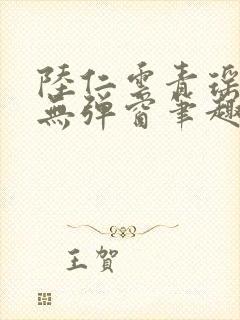 陸仁雲青瑤
無彈窗筆趣
王賀